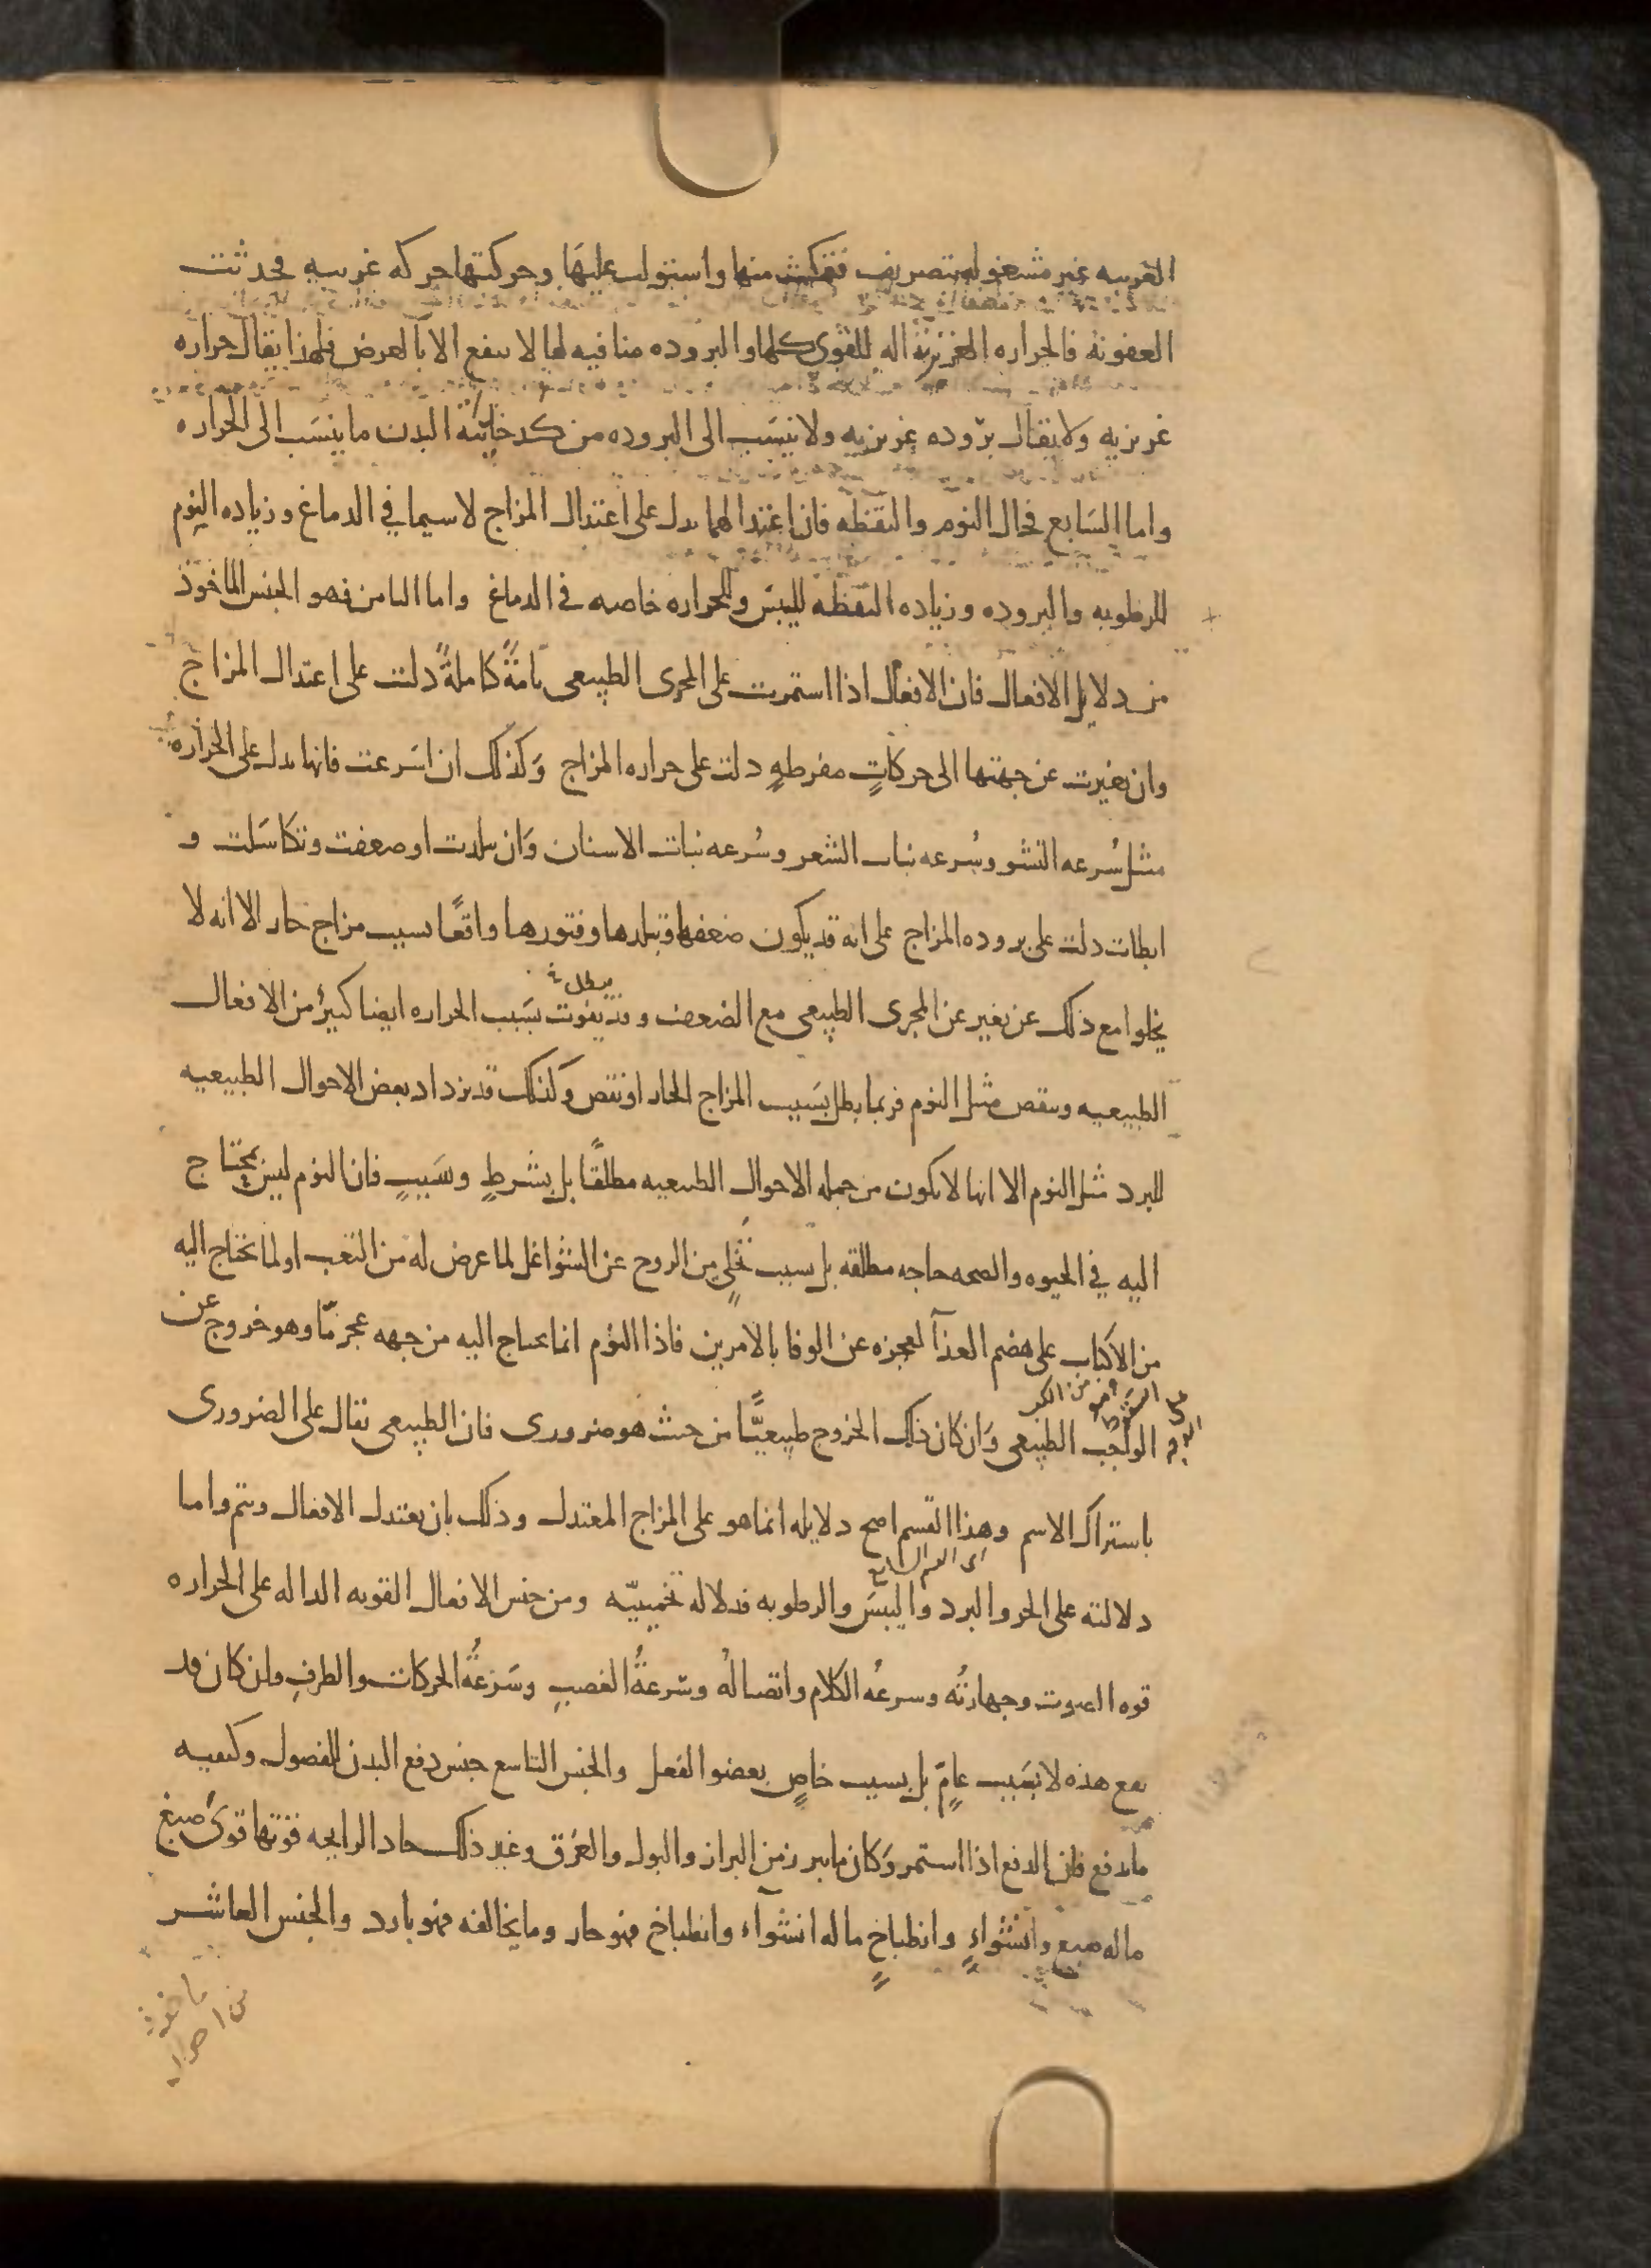 الغريبه غير مشغوله بتصريف فتمكنت منها واستولت عليها وحركتها حركه غريبه فحدثت
العفونة فالحراره الغريزية اله للقوى كلها والبروده منافيه لها لا ينفع الا بالعرض فلهذا يقال حراره
غريزيه ولا يقال بروده غريزيه ولا ينسب الى البروده من كدخدائية البدن ما ينسب الى الحراره
واما السابع فحال النوم واليقظه فان اعتدالهما يدل على اعتدال المزاج لاسيما في الدماغ وزياده النوم
للرطوبه والبروده وزياده اليقظه لليبس وللحراره خاصه في الدماغ واما الثامن فهو الجنس الماخوذ
من دلايل الافعال فان الافعال اذا استمرت على المجرى الطبيعى تامةً كاملةً دلت على اعتدال المزاج
وان تغيرت عن جهتها الى حركاتٍ مفرطهٍ دلت على حراره المزاج وكذلك ان اسرعت فانها يدل على الحراره
مثل سُرعه النشو وسُرعه نبات الشعر وسُرعه نبات الاسنان وان تبلدت او ضعفت وتكاسلت و
ابطات دلت على بروده المزاج على انه قد يكون ضعفها وتبلدها وفتورها واقعًا بسبب مزاج حار الا انه لا
يخلوا مع ذلك عن تغير عن المجرى الطبيعى مع الضعف وقد يفوت بسبب الحراره ايضا كثيرٌ من الافعال
الطبيعيه وينقص مثل النوم فربما بطل بسبب المزاج الحار او نقص وكذلك قد يزداد بعض الاحوال الطبيعيه
للبرد مثل النوم الا انها لا يكون من جمله الاحوال الطبيعيه مطلقًا بل بشرطٍ وسببٍ فان النوم ليس يحتاج
اليه في الحيوه والصحه حاجه مطلقه بل بسبب تخلٍّ من الروح عن الشواغل لما عرض له من التعب او لما يحتاج اليه
من الاكباب على هضم الغذآ لعجزه عن الوفا بالامرين فاذا النوم انما يحتاج اليه من جهه عجز مّا وهو خروج عن
الواجب الطبيعى وان كان ذلك الخروج طبيعيًّا من حيث هو ضرورى فان الطبيعى يقال على الضرورى
باشتراك الاسم وهذا القسم اصح دلايله انما هو على المزاج المعتدل وذلك بان يعتدل الافعال ويتم واما
دلالته على الحر والبرد واليبس والرطوبه فدلاله تخمينيّه ومن جنس الافعال القويه الداله على الحراره
قوه الصوت وجهارتُه وسرعهُ الكلام واتصالُه وسرعةُ الغضبِ وسرعةُ الحركات والطرفِ وان كان قد
يقع هذه لا بسبب عامٍّ بل بسبب خاصٍ بعضو الفعل والجنس التاسع جنس دفع البدن للفضول وكيفيه
ما يدفع فان الدفع اذا استمر وكان ما يبرز من البراز والبول والعرق وغير ذلك حاد الرايحه قوتها قوىّ صبغ
ما له صبغ وانشواءٍ وانطباخٍ ما له انشواء وانطباخ فهو حار وما يخالفه فهو بارد والجنس العاشر